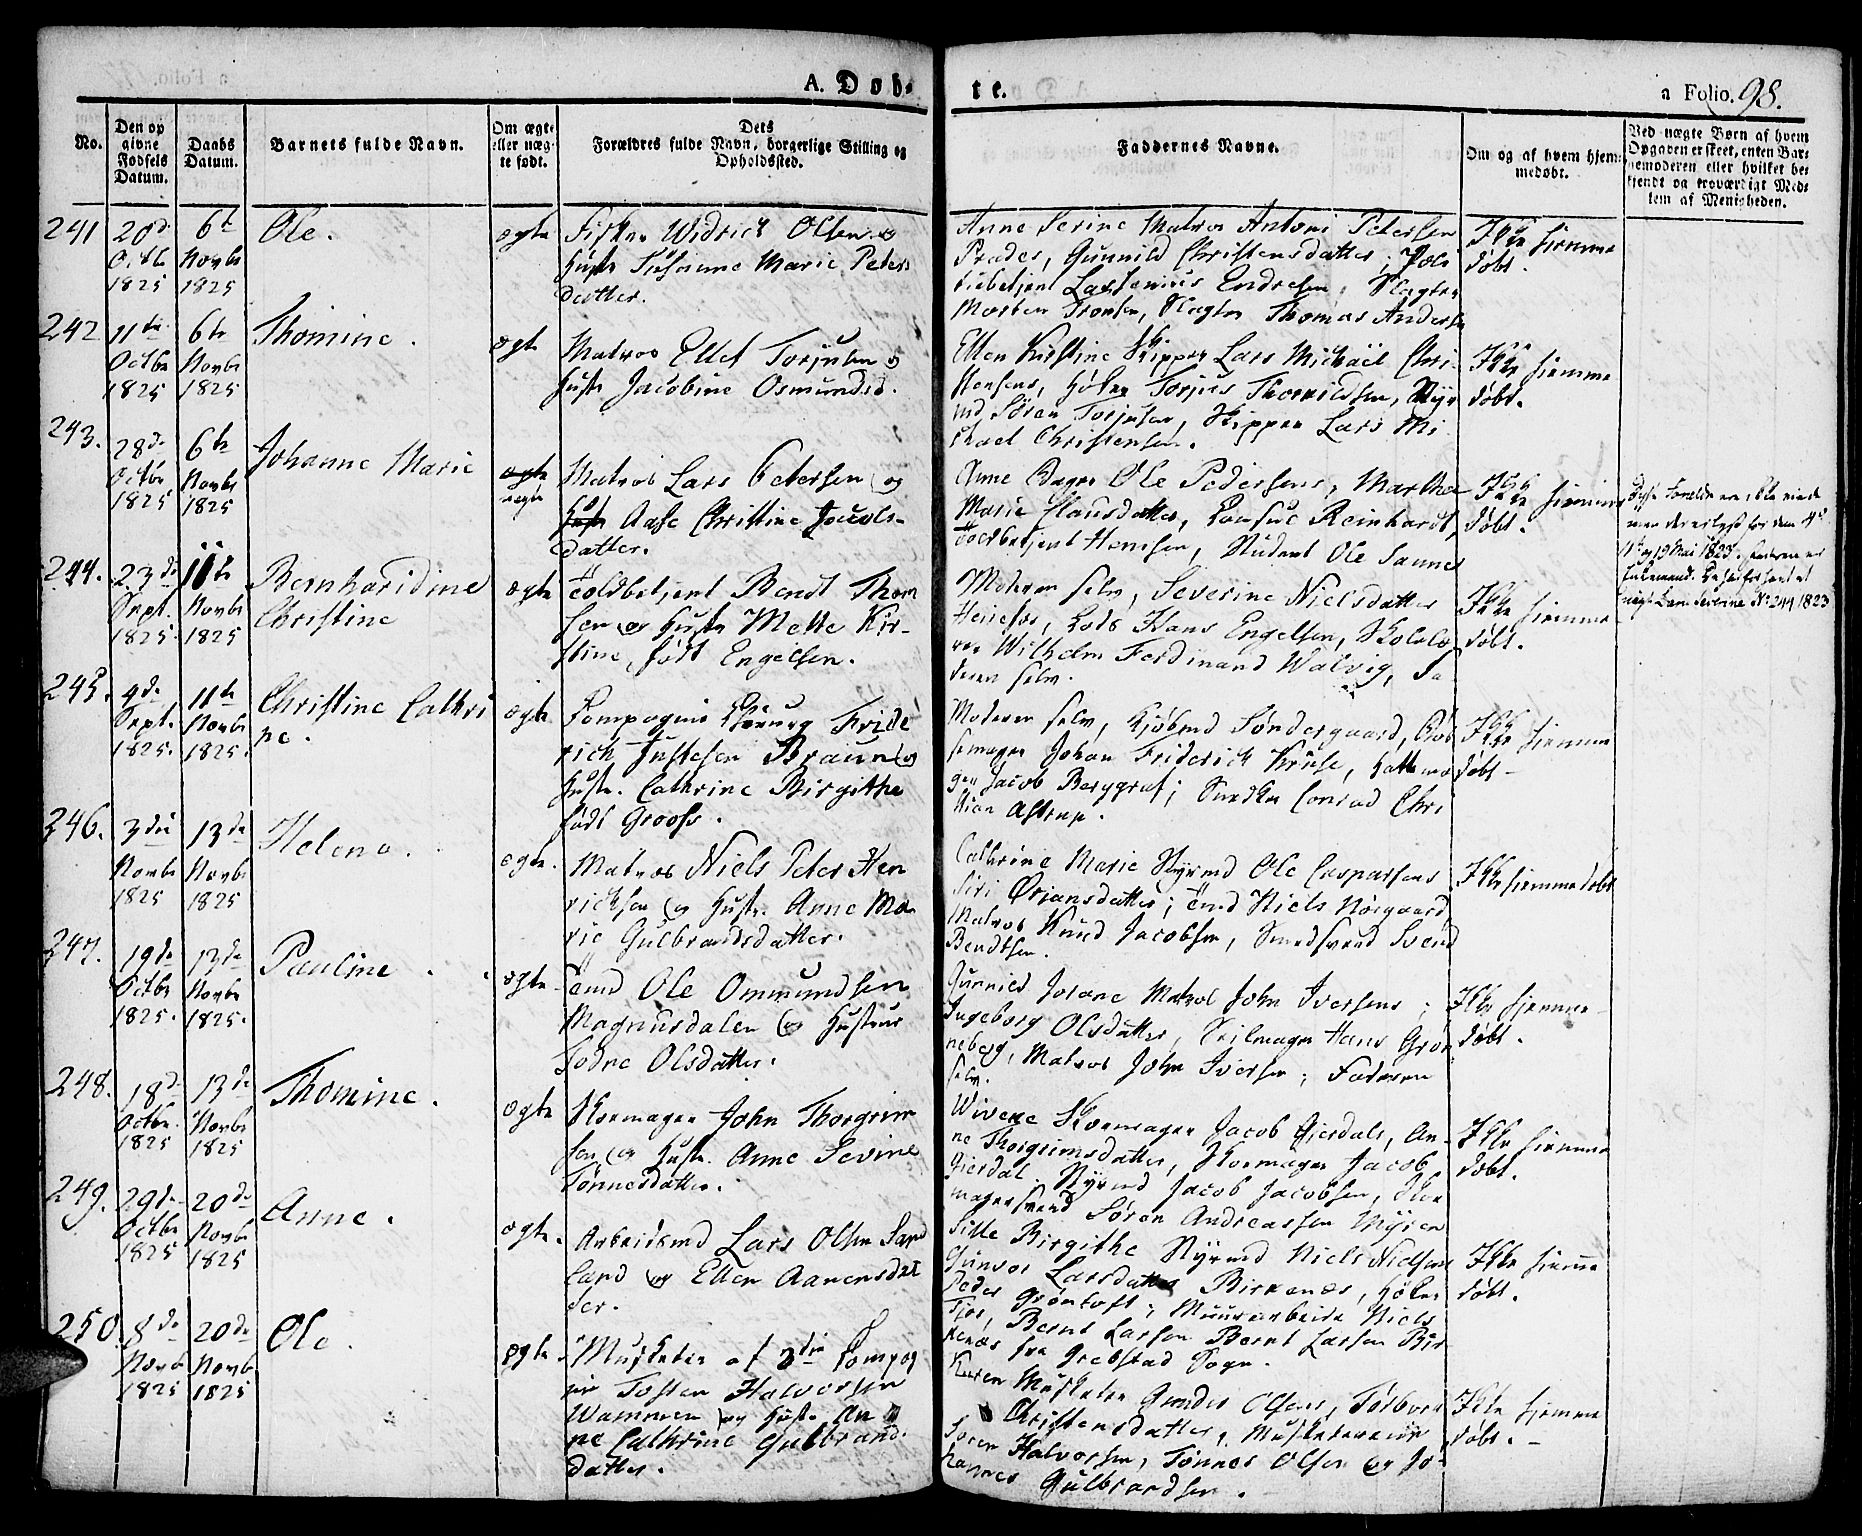 A. Døb-
te.
a Folio. 98.
No.
Den op
givne
Fødsels
Datum.
Daabs
Datum.
Barnets fulde Navn.
Om ægte
eller uæg-
te født.
Dets
Forældres fulde Navn, borgerlige Stilling og
Opholdssted.
Faddernes Navne.
Om og af hvem hjem-
medøbt.
Ved uægte Børn af hvem
Opgaven er skeet, enten Bar-
nemoderen eller hvilket be-
kjendt og troværdigt Med-
lem af Menigheden.
241
20d
Octb
1825
6te
Novbr
1825
Ole.
ægte
Fisker Widrich Olsen og
Hustr Susanne Marie Peters
datter.
Anne Serine Matros Antoni Petersen
Prades, Gunnild Christensdatter; Poli
tiebetjent Lastenius Endresen, Slagter
Morten Tronsen, Slagter Thomas Andersen
Ikke hjemme
døbt.
242
11te
Octbr
1825
6te
Novbr
1825
Thomine.
ægte
Matros Ellef Torjusen og
Hustr Jacobine Osmundsd.
Ellen Kirstine Skipper Lars Michael Chri-
stensens, Høker Torjus Thorkildsen, Styr
md Søren Torjusen, Skipper Lars Mi
chael Christensen.
Ikke hjemme
døbt.
243.
28de
Octbr
1825
6te
Novbr
1825
Johanne Marie
ægte
uægte
Matros Lars Petersen og
Hustr Aase Christine Jacobs-
datter.
Anne Bager Ole Pedersens, Marthe
Marie Clausdatter, Consul Reinhardt,
Toldbetjent Hemsen, Student Ole Sannes
Ikke hjemme
døbt.
Disse Forældre ere ikke viede
men der er lyst for dem 4de
11te og 19 Mai 1823. Faderen er
Enkemand.
No 244 1823
244.
23de
Sept.
1825.
11te
Novbr
1825
Bernhardine
Christine
ægte
Toldbetjent Bendt Thom
sen og Hustr Mette Kir-
stine, født Engelsen.
Moderen selv, Severine Nielsdatter
Heirefos, Lods Hans Engelsen, Skolelæ
rer Wilhelm Ferdinand Walvig, Fa
deren selv.
Ikke hjemme
døbt.
245.
4de
Sept.
1825.
11te
Novbr
1825.
Christine Cathri
ne.
ægte
Compagnie Chirurg Fride
rich Justesen Braun og
Hustr. Cathrine Birgithe
født Grooss.
Moderen selv, Kjøbmd Søndergaard, Bøs
semager Johan Friderich Kruse, Hattema
ger Jacob Berggraf; Snedker Conrad Chri
stian Astrup.
Ikke hjemme
døbt-
246.
3die
Novbr
1825
13de
Novbr
1825
Helene.
ægte.
Matros Niels Peter Hen
richsen og Hustr. Anne Ma
rie Gulbrandsdatter.
Cathrine Marie Styrmd Ole Caspersens
Siri Ørjansdatter; Tmd Niels Nørgaard,
Matros Knud Jacobsen, Smedsvend Svend
Bendtsen.
Ikke hjemmedøbt
247.
19de
Octbr
1825.
13de
Novbr
1825.
Pauline
ægte
Tmd Ole Ommundsen
Magnusdalen og Hustrue
Todne Olsdatter.
Gunnild Josane Matros John Iversens;
Ingeborg Olsdatter, Seilmager Hans Grøn
neberg, Matros John Iversen; Faderen
selv.
Ikke hjemme-
døbt.
248.
18de
Octbr.
1825
13de
Novbr
1825
Thomine.
ægte
Skomager John Thorgrim
sen, og Hustr. Anne Sevine
Tønnesdatter.
Wivene Skomager Jacob Gjerdals, An-
ne Thorgrimsdatter, Skomager Jacob
Gjerdal. Styrmd Jacob Jacobsen, Sko
magersvend Søren Andreassen Myren
Ikke hjemme
døbt.
249.
29de
Octbr
1825
20de
Novbr
1825
Anne.
ægte.
Arbeidsmd Lars Olsen Sand
land og Ellen Aanensdat
ter.
Sille Birgithe Styrmd Niels Nielsens
Gunvor Larsdatter Birkenæs, Høker
Peder Grøntoft; Muurarbeider Niels
Bernt Larsen Bernt Larsen Bir
kenæs fra Grebstad Sogn.
Ikke hjemme
døbt.
250.
8de
Novbr
1825
20de
Novbr
1825
Ole.
ægte.
Musketer af 3die Compag
nie Tosten Halvorsen
Wammen og Hustr. An
ne Cathrine Gulbrands
datter.
Karen Musketer Gunder Olsens, Torbor
Christensdatter, Musketererne
Søren Halvorsen, Tønnes Olsen og Jo-
hannes Gulbrandsen.
Ikke hjemme
døbt.-